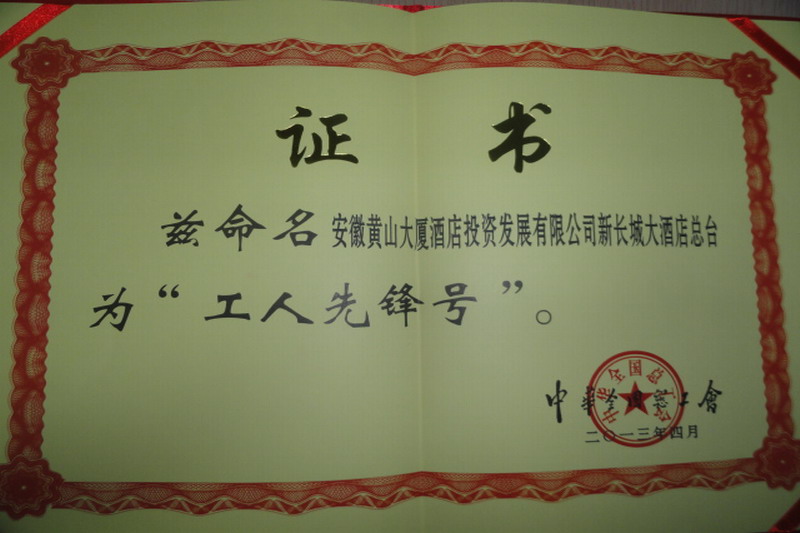 证 书
兹命名安徽黄山大厦酒店投资发展有限公司新长城大酒店总台
为“工人先锋号”。
中華全國總工會
中华全国总工会
二〇一三年四月